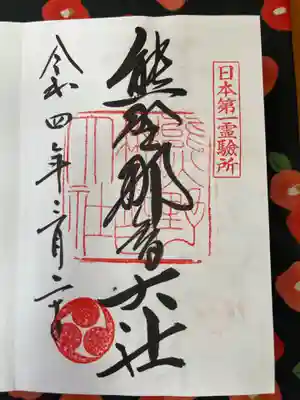 日本第一霊験所
熊野那智大社
令和四年三月二十日